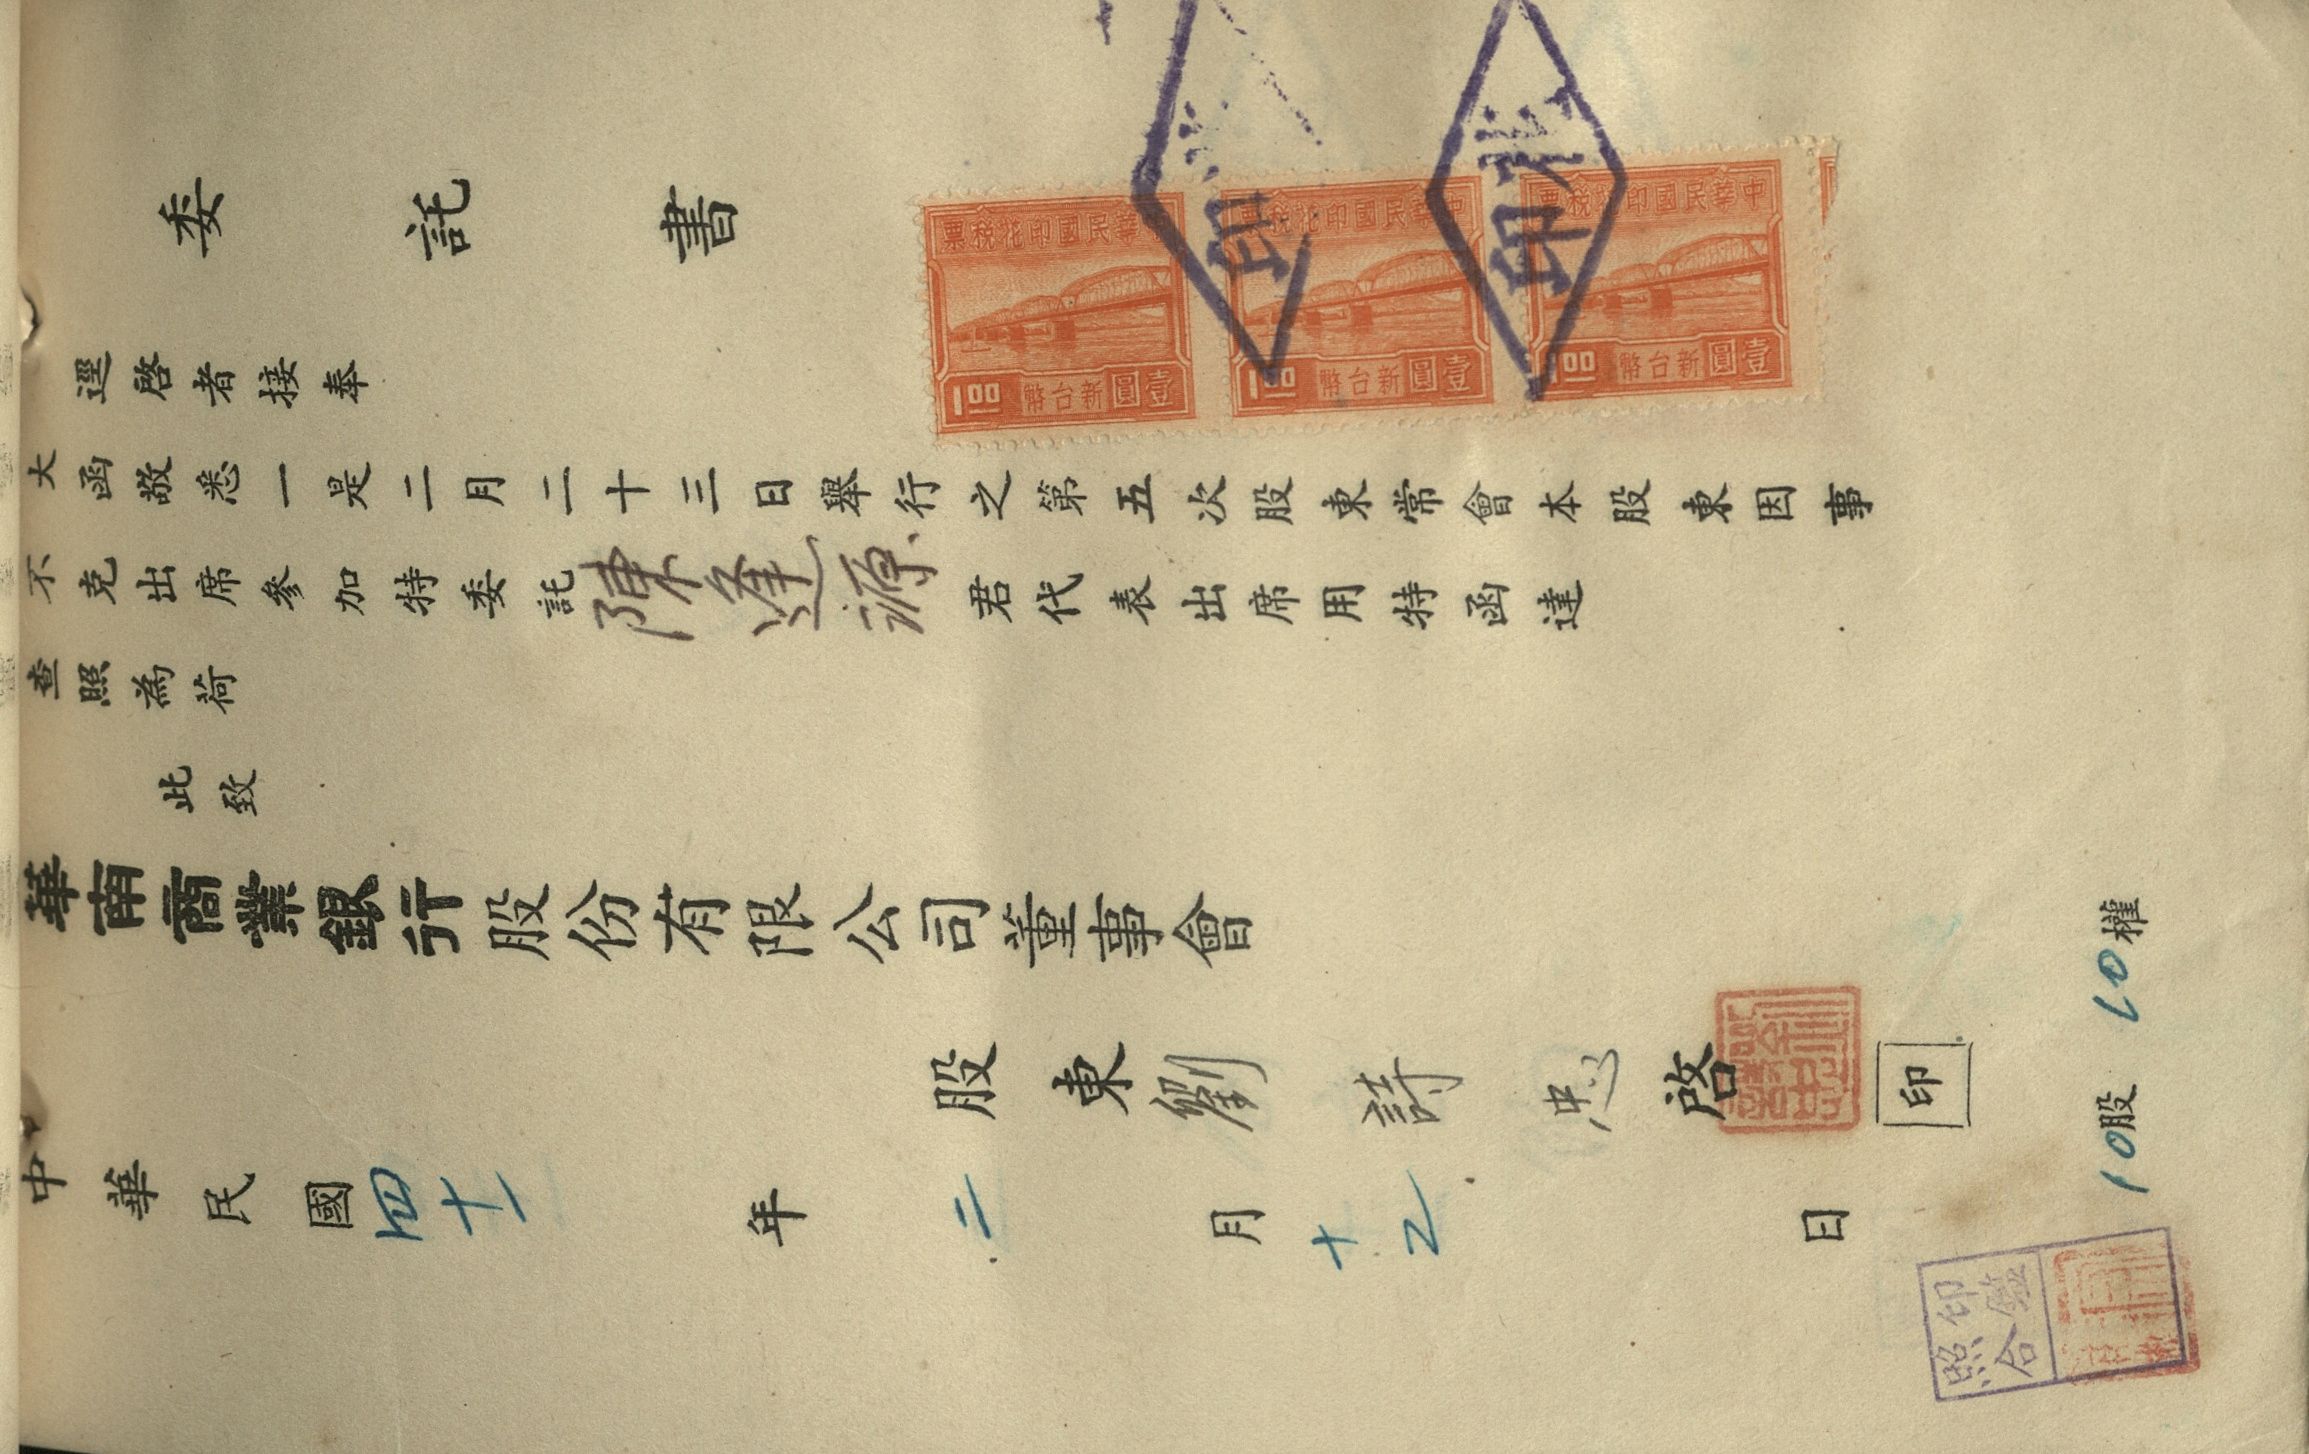 委託書
逕啓者接奉
大函敬悉一是二月二十三日舉行之第五次股東常會本股東因事
不克出席參加特委託陳逢源君代表出席用特函達
查照為荷
此致
華南商業銀行股份有限公司董事會
股東劉詩忠啓
印
中華民國四十一年二月十五日
10股 10權
印鑑
照合
中華民國印花稅票
壹圓 新台幣 1.00
中華民國印花稅票
壹圓 新台幣 1.00
中華民國印花稅票
壹圓 新台幣 1.00